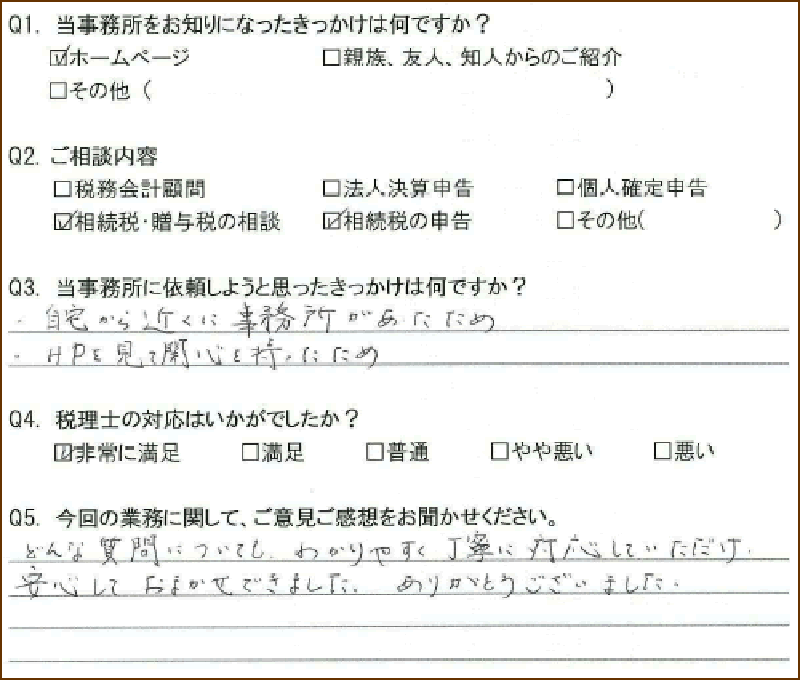 Q1. 当事務所をお知りになったきっかけは何ですか？
☑ホームページ □親族、友人、知人からのご紹介
□その他（ ）
Q2. ご相談内容
□税務会計顧問 □法人決算申告 □個人確定申告
☑相続税・贈与税の相談 ☑相続税の申告 □その他( )
Q3. 当事務所に依頼しようと思ったきっかけは何ですか？
・自宅から近くに事務所があったため
・HPを見て関心を持ったため
Q4. 税理士の対応はいかがでしたか？
☑非常に満足 □満足 □普通 □やや悪い □悪い
Q5. 今回の業務に関して、ご意見ご感想をお聞かせください。
どんな質問についても、わかりやすく丁寧に対応していただけ、
安心しておまかせできました。ありがとうございました。